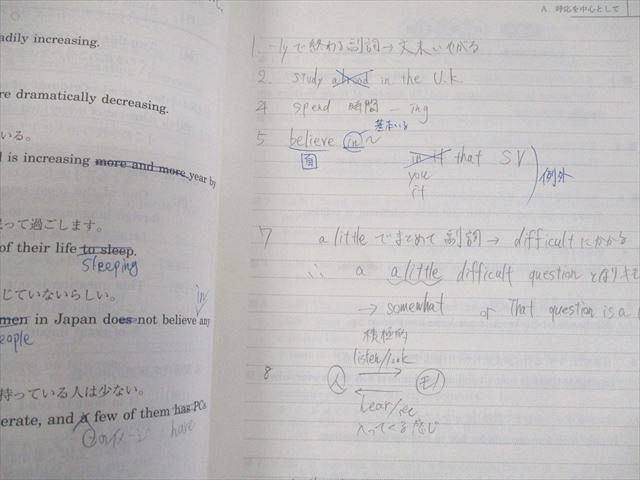 A. 呼応を中心として
adily increasing.
re dramatically decreasing.
いる。
d is increasing more and more year by
って過ごします。
of their life to sleep.
sleeping
じていないらしい。
in
men in Japan does not believe any
eople
持っている人は少ない。
erate, and A few of them has PCs
have
1. -lyで終わる副詞→文末いやがる
2. study abroad in the U.K.
4 spend 時間 - ing
5 believe in ~
基本いる
有
in it that SV
you
it
例外
7 a little でまとめて副詞 → difficult にかかる
∴ a a little difficult question となり
→ somewhat or That question is a l
積極的
listen/look
8 人 モノ
hear/see
入ってくる感じ